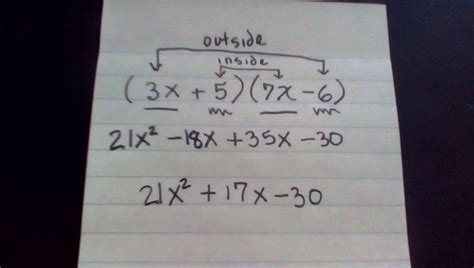 outside
inside
(3x + 5)(7x - 6)
21x² - 18x + 35x - 30
21x² + 17x - 30